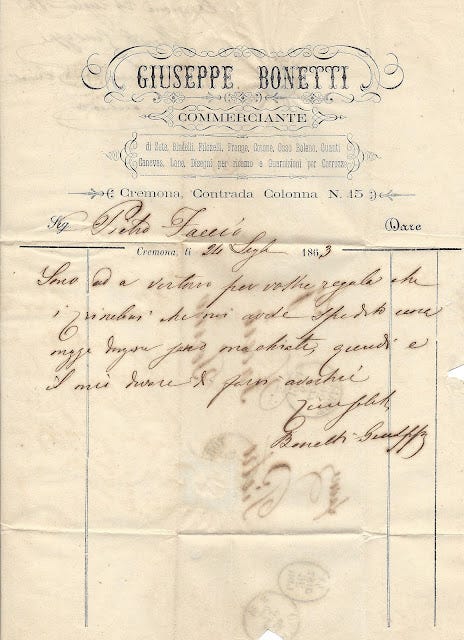 GIUSEPPE BONETTI
COMMERCIANTE
di Seta, Bindelli, Filozelli, Frange, Cotone, Osso Balano, Guanti
Canevas, Lane, Disegni per ricamo e Guarnizioni per Carrozze
Cremona, Contrada Colonna N. 15
Sig. Pietro Faccio Dare
Cremona, li 24 Luglio 1863
Sono ad a vertirvi per vostra regola che
i che mi avete spedito une
sono machiati, quindi e
il mio dovere di farvi
Bonetti Giuseppe